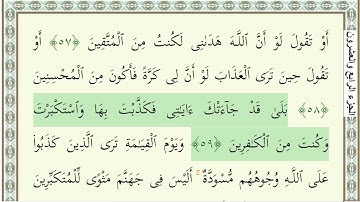 أَوْ تَقُولَ لَوْ أَنَّ ٱللَّهَ هَدَىٰنِى لَكُنتُ مِنَ ٱلْمُتَّقِينَ ﴿٥٧﴾ أَوْ
تَقُولَ حِينَ تَرَى ٱلْعَذَابَ لَوْ أَنَّ لِى كَرَّةً فَأَكُونَ مِنَ ٱلْمُحْسِنِينَ
﴿٥٨﴾ بَلَىٰ قَدْ جَآءَتْكَ ءَايَٰتِى فَكَذَّبْتَ بِهَا وَٱسْتَكْبَرْتَ
وَكُنتَ مِنَ ٱلْكَٰفِرِينَ ﴿٥٩﴾ وَيَوْمَ ٱلْقِيَٰمَةِ تَرَى ٱلَّذِينَ كَذَبُوا۟
عَلَى ٱللَّهِ وُجُوهُهُم مُّسْوَدَّةٌ ۚ أَلَيْسَ فِى جَهَنَّمَ مَثْوًى لِّلْمُتَكَبِّرِينَ
الجزء الرابع والعشرون